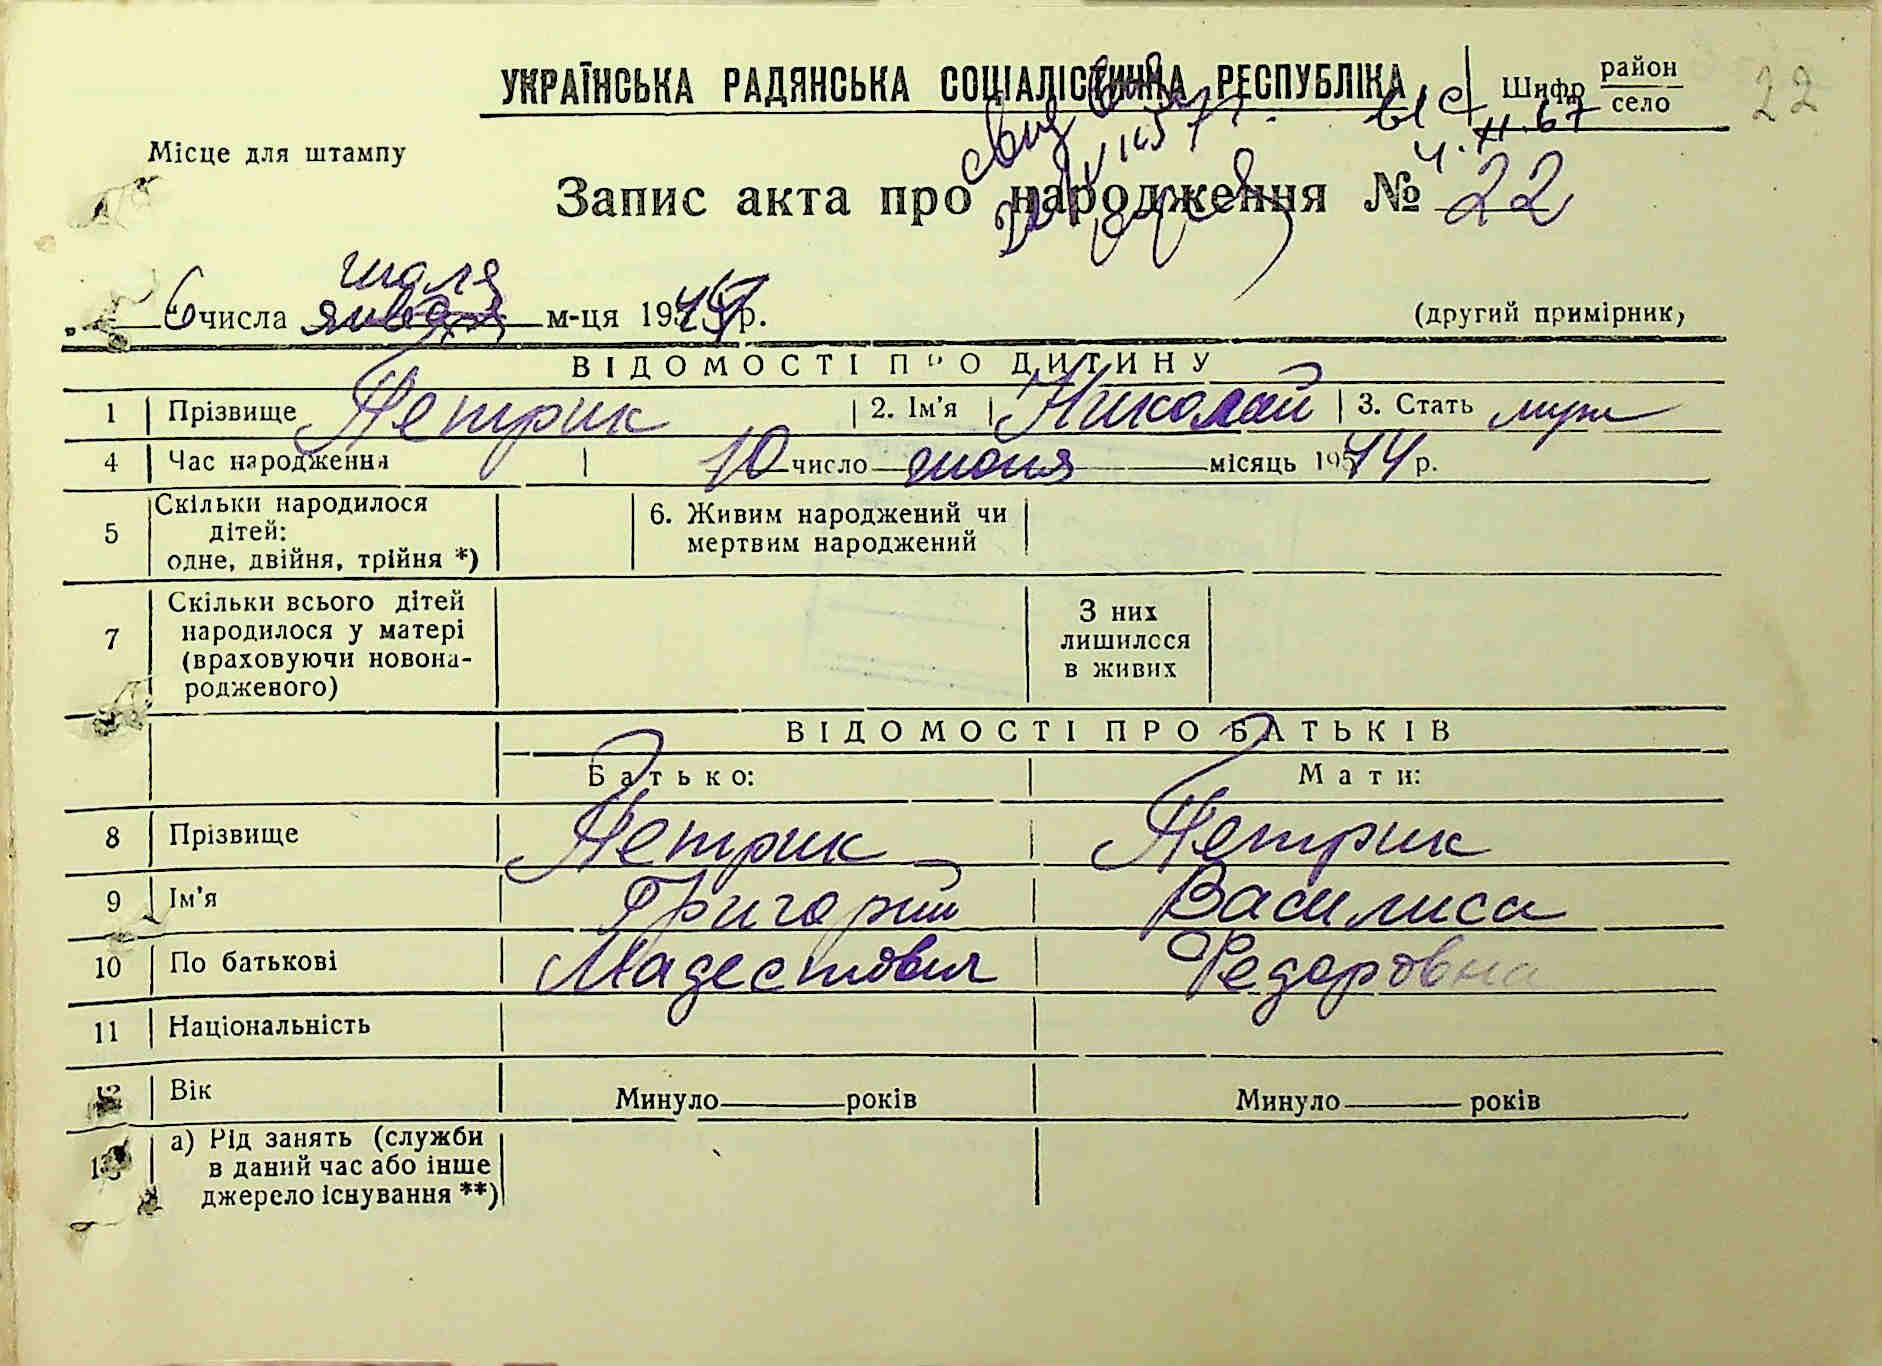 УКРАЇНСЬКА РАДЯНСЬКА СОЦІАЛІСТИЧНА РЕСПУБЛІКА
Шифр район
село
22
Місце для штампу
Запис акта про народження № 22
июля
6 числа января м-ця 1944 р.
(другий примірник)
ВІДОМОСТІ ПРО ДИТИНУ
1 Прізвище Петрик 2. Ім'я Николай 3. Стать муж
4 Час народження 10 число июня місяць 1944 р.
5 Скільки народилося дітей: одне, двійня, трійня *) 6. Живим народжений чи мертвим народжений
7 Скільки всього дітей народилося у матері (враховуючи новона-родженого) З них лишилося в живих
ВІДОМОСТІ ПРО БАТЬКІВ
Батько: Мати:
8 Прізвище Петрик Петрик
9 Ім'я Григорий Василиса
10 По батькові Мадестович Федоровна
11 Національність
12 Вік Минуло років Минуло років
13 а) Рід занять (служби в даний час або інше джерело існування **)